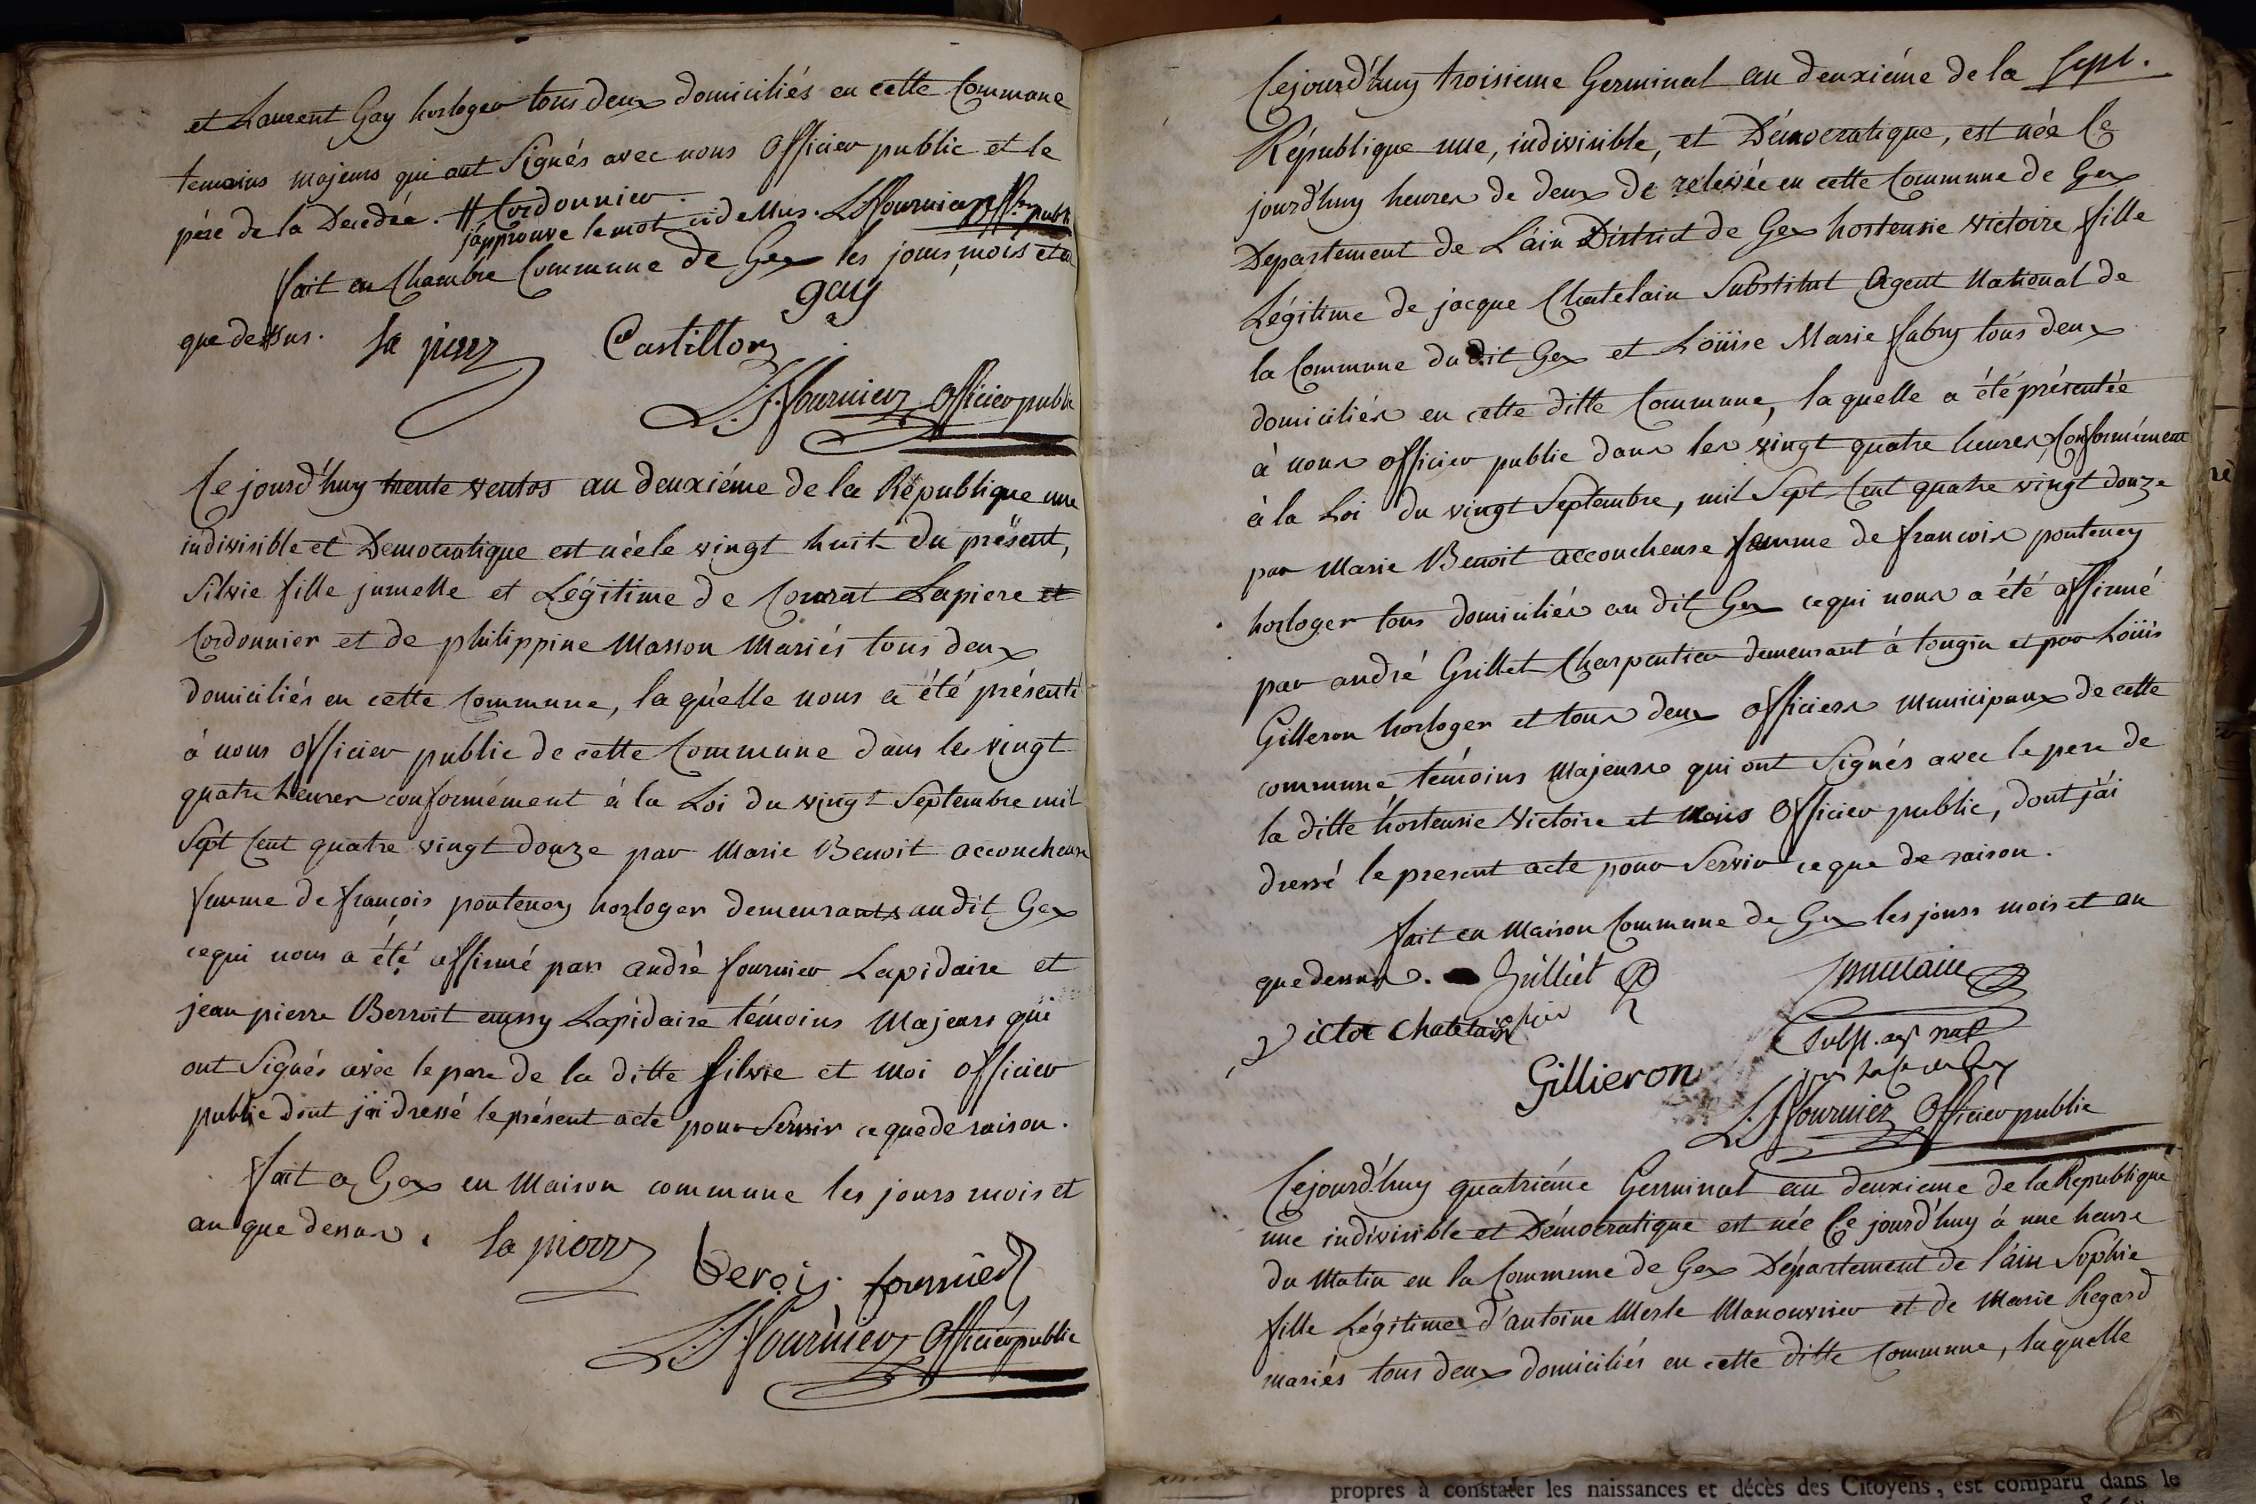 et Laurent Gay horloger tous deux domiciliés en cette Commune
temoins majeurs qui ont Signés avec nous Officier public et le
pére de la Decedée. # Cordonnier.
japprouve le mot cidessus. LJfournier off.er publi
fait en Chambre Commune de Gex les jours, mois et an
que dessus. la pierr Castillon gay
L.J.fournier Officier public
Ce jourd'huy trente ventos an deuxiéme de la République une
indivisible et Democratique est née le vingt huit du présent,
Silvie fille jumelle et Légitime de Conrat Lapiere et
Cordonnier et de philippine Masson Mariés tous deux
domiciliés en cette Commune, la quelle nous a été présenté
à nous officier public de cette Commune dans les vingt
quatre heures conformément à la Loi du vingt Septembre mil
Sept Cent quatre vingt douze par Marie Benoit accoucheuse
femme de françois ponteney horloger demeurants audit Gex
cequi nous a été affirmé par andré fournier Lapidaire et
jean pierre Berroit aussy Lapidaire témoins Majeurs qui
ont Signés avec le pere de la ditte Silvie et moi officier
public dont jai dressé le présent acte pour Servir ceque de raison.
fait a Gex en Maison commune les jours mois et
an que dessus. la pierr
Berois. fournier
L.J.fournier Officier public
Cejourd'huy troisieme Germinal an deuxiéme de la Sept.
République une, indivisible, et Démocratique, est née Ce
jourd'huy heures de deux de relevée en cette Commune de Gex
Departement de L'ain District de Gex hortensie victoire fille
Légitime de jacque Chatelain Substitut Agent National de
la Commune dudit Gex et Loüise Marie fabry tous deux
domiciliés en cette ditte Commune, laquelle a été présentée
à nous officier public dans les vingt quatre heures, Conformément
à la Loi du vingt Septembre, mil Sept Cent quatre vingt douze
par Marie Benoit accoucheuse femme de francois ponteney
horloger tous domiciliés au dit Gex cequi nous a été affirmé
par andré Grillet Charpentier demeurant à tougin et par Loüis
Gilleron horloger et tous deux officiers Municipaux de cette
commune témoins Majeurs qui ont Signés avec le pere de
la ditte hortensie Victoire et Nous Officier public, dont j'ai
dressé le present acte pour Servir ceque de raison.
fait en Maison Commune de Gex les jours mois et an
que dessus.
Victor Chatelain
Gillieron
L.J.fournier Officier public
Cejourd'huy quatriéme Germinal an deuxieme de la Republique
une indivisible et Démocratique est née Ce jourd'huy à une heure
du Matin en la Commune de Gex Département de l'ain Sophie
fille Légitime d'antoine Merle Manouvrier et de Marie Regard
mariés tous deux domiciliés en cette ditte Commune, laquelle
propres à constater les naissances et décès des Citoyens, est comparu dans le